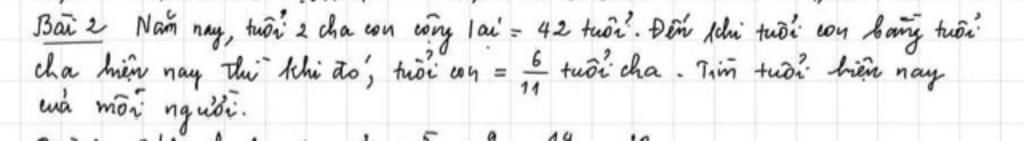 Bài 2 Năm nay, tuổi 2 cha con cộng lại = 42 tuổi. Đến khi tuổi con bằng tuổi
cha hiện nay thì khi đó, tuổi con = 6/11 tuổi cha. Tìm tuổi hiện nay
của mỗi người.